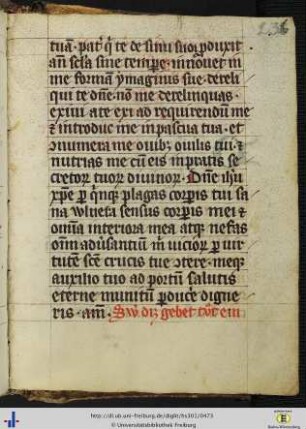 tuā· pat̄ q̄ te de sinu suo p̱duxit
an̄ sc̄la sine tempe· innouet in
me formam ymaginis sue· dereli
qui te dn̄e· nō me derelinquas·
exiui a te exi ad requirendū me
& introduc me in pascua tua· et
annumera me ouib; ouilis tui· &
nutrias me cū eis in pratis se
cretor tuor diuinor· Dn̄e ih̄u
xp̄e p q̄nq̄; plagas corp̱is tui sa
na uulnera sensus corp̱is mei &
om̄ia interiora mea atq̄; nefas
om̄ aduersantiū m̄ uictor p uir
tutē sc̄e crucis tue ↄtere· meq̄;
auxilio tuo ad portū salutis
eterne munitū p̱duc̄e digne
ris· am̄· Swˢ diz gebet tūt ein
http://dl.ub.uni-freiburg.de/diglit/hs301/0473
© Universitätsbibliothek Freiburg